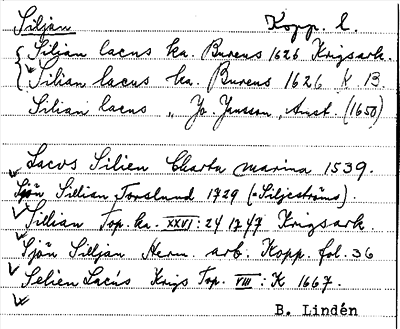 Siljan Kopp. l.
Silian lacus ka. Bureus 1626 Krigsark.
Silian lacus ka. Bureus 1626 K 13.
Silian lacus " Jo. Jansson, Amst. (1650)
Lacvs Silien Charta marina 1539.
Sjön Sillian Torslund 1729 (=Siljeströms).
Sillian Top. ka. XXVI: 24 1747 Krigsark.
Sjön Silljan Herm. arb. Kopp. fol. 36
Selien Lacús Krigs Top. VIII: K 1667.
B. Lindén